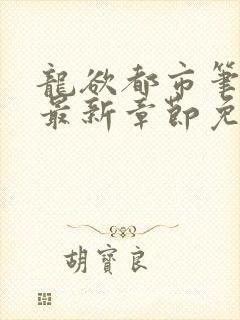 龍欲都市筆
最新章節免
胡寶良